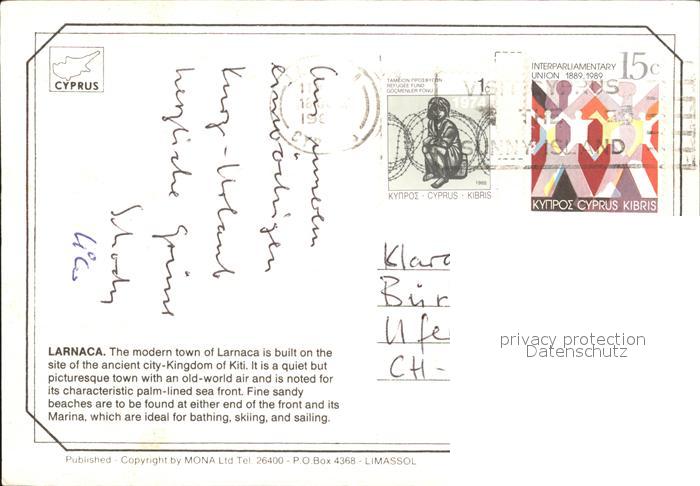 CYPRUS
Aus unserem
einwöchigen
Kurz-Urlaub
herzliche Grüsse
ΤΑΜΕΙΟΝ ΠΡΟΣΦΥΓΩΝ
REFUGEE FUND
GÖÇMENLER FONU
1c
1974
1988
ΚΥΠΡΟΣ · CYPRUS · KIBRIS
INTERPARLIAMENTARY
UNION 1889.1989
15c
ΚΥΠΡΟΣ CYPRUS KIBRIS
VISIT CYPRUS
THE
SUNNY ISLAND
Klar
Bür
Ufe
CH-
privacy protection
Datenschutz
LARNACA. The modern town of Larnaca is built on the
site of the ancient city-Kingdom of Kiti. It is a quiet but
picturesque town with an old-world air and is noted for
its characteristic palm-lined sea front. Fine sandy
beaches are to be found at either end of the front and its
Marina, which are ideal for bathing, skiing, and sailing.
Published - Copyright by MONA Ltd Tel. 26400 - P.O.Box 4368 - LIMASSOL